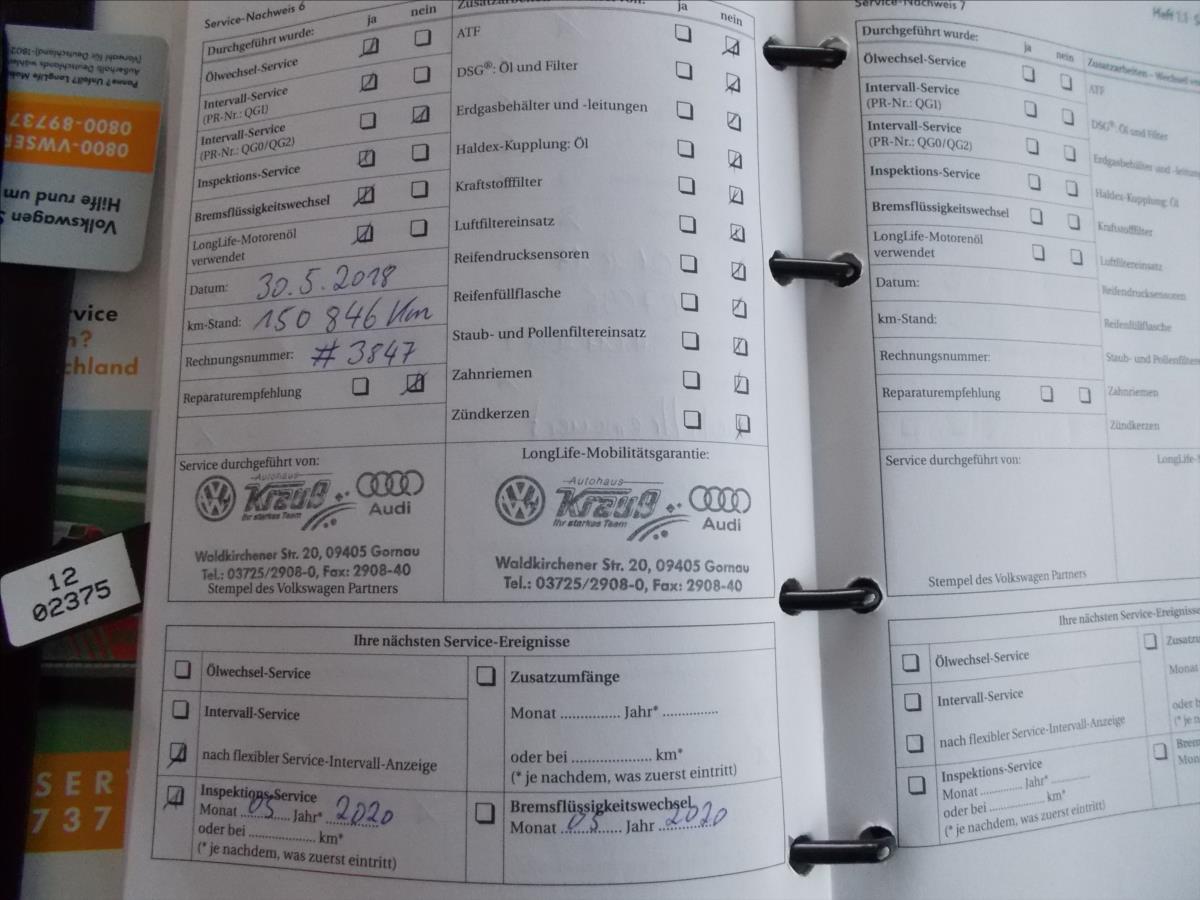 Service-Nachweis 6
Durchgeführt wurde:
ja
nein
Ölwechsel-Service
Intervall-Service
(PR-Nr.: QG1)
Intervall-Service
(PR-Nr.: QG0/QG2)
Inspektions-Service
Bremsflüssigkeitswechsel
LongLife-Motorenöl
verwendet
Datum: 30.5.2018
km-Stand: 150 846 Km
Rechnungsnummer: # 3847
Reparaturempfehlung
ja
nein
ATF
DSG®: Öl und Filter
Erdgasbehälter und -leitungen
Haldex-Kupplung: Öl
Kraftstofffilter
Luftfiltereinsatz
Reifendrucksensoren
Reifenfüllflasche
Staub- und Pollenfiltereinsatz
Zahnriemen
Zündkerzen
Service durchgeführt von:
Autohaus
Krauß
Ihr starkes Team
Audi
Waldkirchener Str. 20, 09405 Gornau
Tel.: 03725/2908-0, Fax: 2908-40
Stempel des Volkswagen Partners
LongLife-Mobilitätsgarantie:
Autohaus
Krauß
Ihr starkes Team
Audi
Waldkirchener Str. 20, 09405 Gornau
Tel.: 03725/2908-0, Fax: 2908-40
Ihre nächsten Service-Ereignisse
Ölwechsel-Service
Intervall-Service
nach flexibler Service-Intervall-Anzeige
Inspektions-Service
Monat 05 Jahr* 2020
oder bei .................... km*
(* je nachdem, was zuerst eintritt)
Zusatzumfänge
Monat ............... Jahr* ..............
oder bei .................... km*
(* je nachdem, was zuerst eintritt)
Bremsflüssigkeitswechsel
Monat 05 Jahr 2020
Service-Nachweis 7
Durchgeführt wurde:
ja
nein
Ölwechsel-Service
Intervall-Service
(PR-Nr.: QG1)
Intervall-Service
(PR-Nr.: QG0/QG2)
Inspektions-Service
Bremsflüssigkeitswechsel
LongLife-Motorenöl
verwendet
Datum:
km-Stand:
Rechnungsnummer:
Reparaturempfehlung
Zusatzarbeiten – Wechsel
ATF
DSG®: Öl und Filter
Erdgasbehälter und -leitung
Haldex-Kupplung: Öl
Kraftstofffilter
Luftfiltereinsatz
Reifendrucksensoren
Reifenfüllflasche
Staub- und Pollenfilter
Zahnriemen
Zündkerzen
Service durchgeführt von:
Stempel des Volkswagen Partners
Ihre nächsten Service-Ereignisse
Ölwechsel-Service
Intervall-Service
nach flexibler Service-Intervall-Anzeige
Inspektions-Service
Monat ............... Jahr* ..............
oder bei .................... km*
(* je nachdem, was zuerst eintritt)
Monat
oder b
(* je n
Brem
Mona
0800-89737
0800-VWSER
Hilfe rund um
Volkswagen S
rvice
n?
chland
12
02375
SER
737